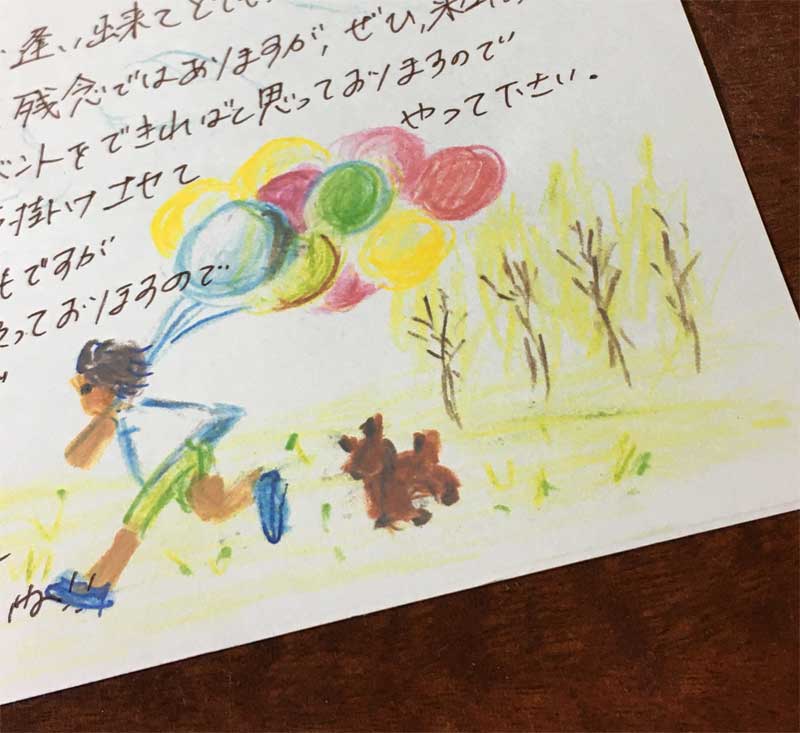 逢い出来てとても
残念ではありますが、ぜひ、来
ベントをできればと思っておりまるので
やって下さい。
掛けさせて
もですが
っておりまるので
ね!!